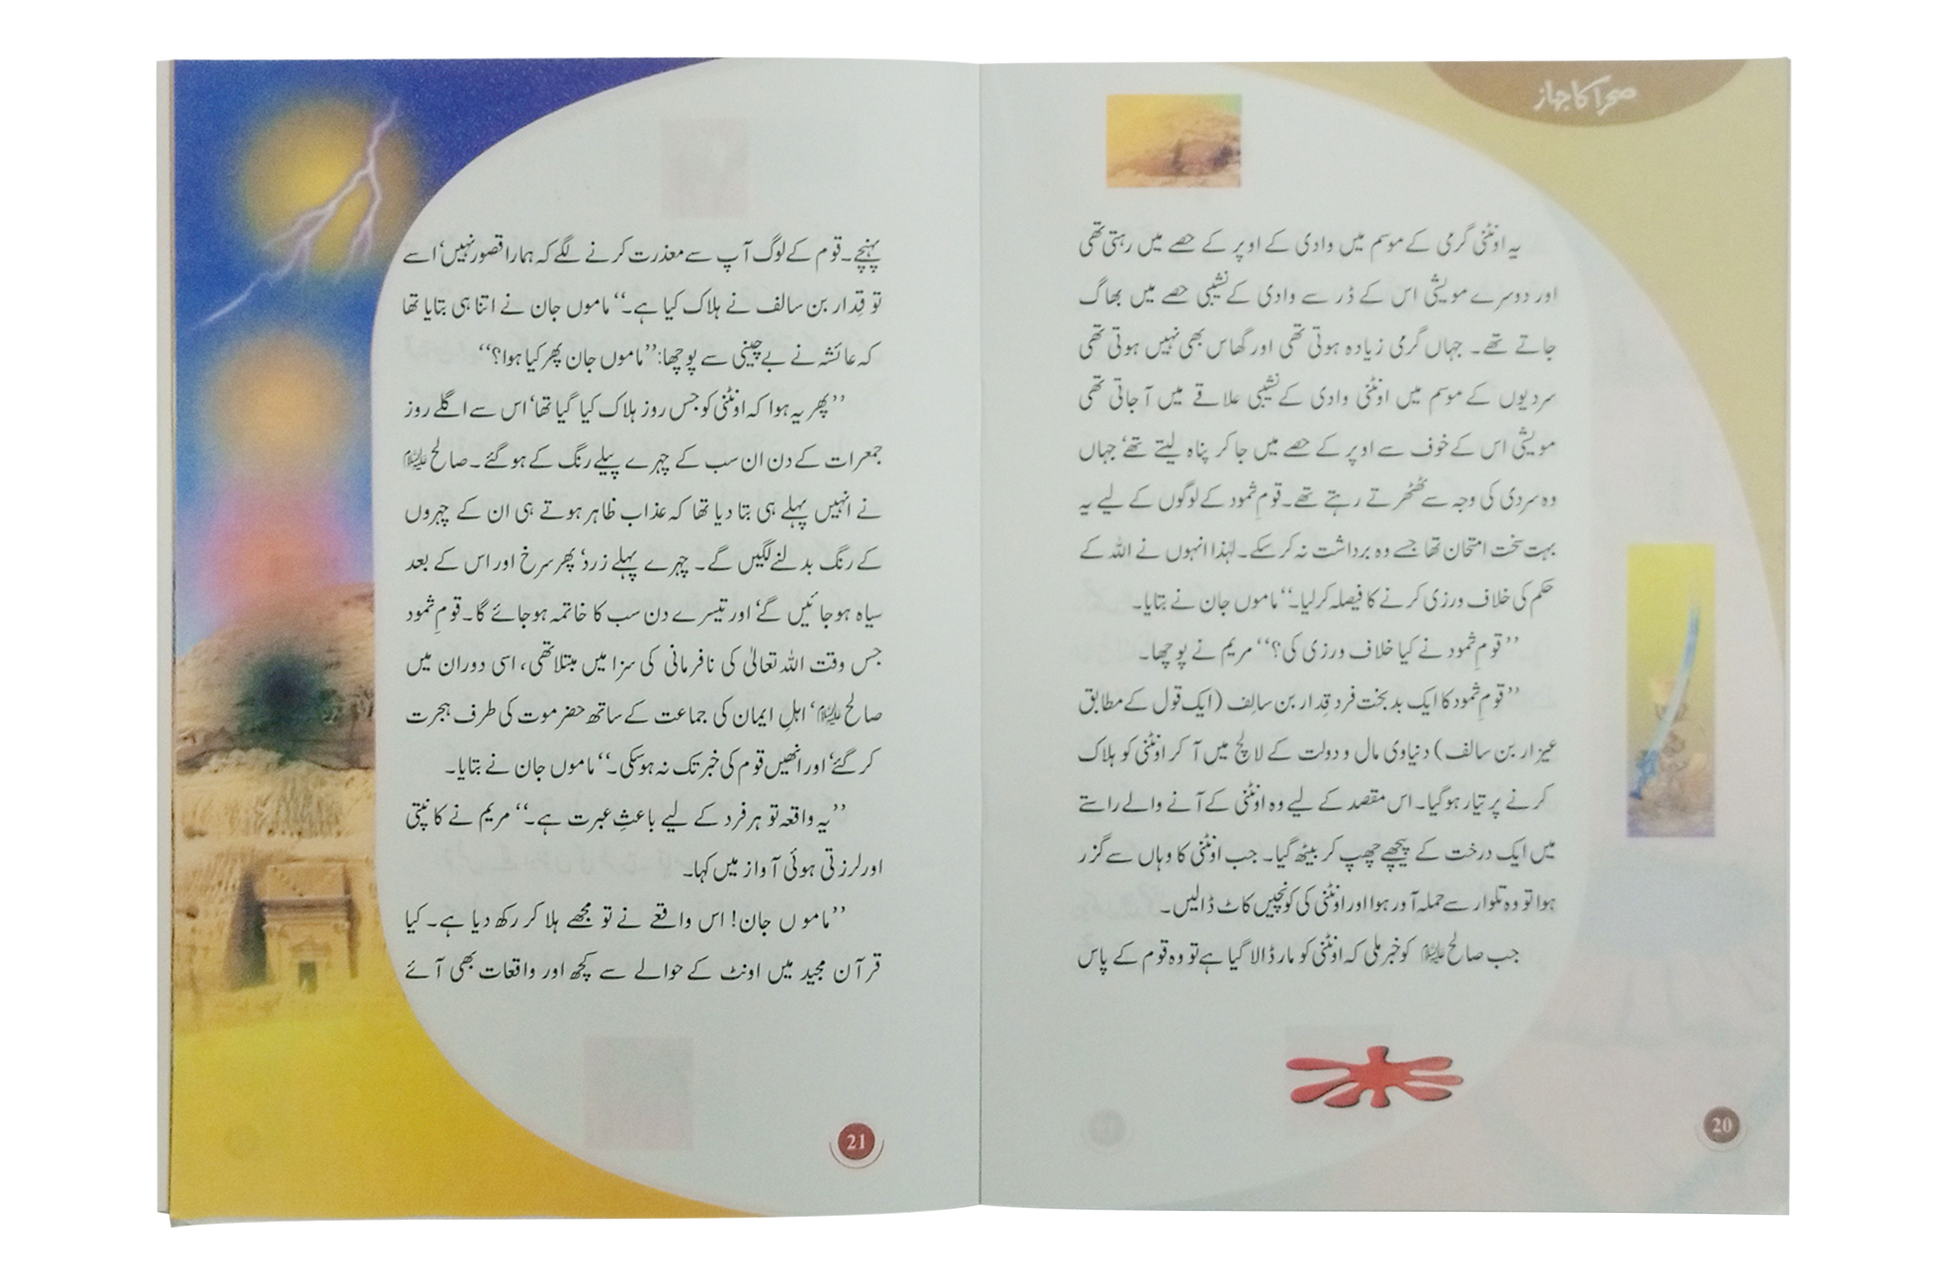 صحرا کا جہاز
یہ اونٹنی گرمی کے موسم میں وادی کے اوپر کے حصے میں رہتی تھی
اور دوسرے مویشی اس کے ڈر سے وادی کے نشیبی حصے میں بھاگ
جاتے تھے۔ جہاں گرمی زیادہ ہوتی تھی اور گھاس بھی نہیں ہوتی تھی
سردیوں کے موسم میں اونٹنی وادی کے نشیبی علاقے میں آجاتی تھی
مویشی اس کے خوف سے اوپر کے حصے میں جا کر پناہ لیتے تھے‘ جہاں
وہ سردی کی وجہ سے ٹھٹھرتے رہتے تھے۔ قومِ ثمود کے لوگوں کے لیے یہ
بہت سخت امتحان تھا جسے وہ برداشت نہ کر سکے۔ لہٰذا انہوں نے اللہ کے
حکم کی خلاف ورزی کرنے کا فیصلہ کر لیا۔‘‘ ماموں جان نے بتایا۔
’’قومِ ثمود نے کیا خلاف ورزی کی؟‘‘ مریم نے پوچھا۔
’’قومِ ثمود کا ایک بدبخت فرد قِدار بن سالِف (ایک قول کے مطابق
عیزار بن سالف) دنیاوی مال و دولت کے لالچ میں آ کر اونٹنی کو ہلاک
کرنے پر تیار ہو گیا۔ اس مقصد کے لیے وہ اونٹنی کے آنے والے راستے
میں ایک درخت کے پیچھے چھپ کر بیٹھ گیا۔ جب اونٹنی کا وہاں سے گزر
ہوا تو وہ تلوار سے حملہ آور ہوا اور اونٹنی کی کونچیں کاٹ ڈالیں۔
جب صالح علیہ السلام کو خبر ملی کہ اونٹنی کو مار ڈالا گیا ہے تو وہ قوم کے پاس
20
پہنچے۔ قوم کے لوگ آپ سے معذرت کرنے لگے کہ ہمارا قصور نہیں‘ اسے
تو قِدار بن سالف نے ہلاک کیا ہے۔‘‘ ماموں جان نے اتنا ہی بتایا تھا
کہ عائشہ نے بے چینی سے پوچھا: ’’ماموں جان پھر کیا ہوا؟‘‘
’’پھر یہ ہوا کہ اونٹنی کو جس روز ہلاک کیا گیا تھا‘ اس سے اگلے روز
جمعرات کے دن ان سب کے چہرے پیلے رنگ کے ہو گئے۔ صالح علیہ السلام
نے انہیں پہلے ہی بتا دیا تھا کہ عذاب ظاہر ہوتے ہی ان کے چہروں
کے رنگ بدلنے لگیں گے۔ چہرے پہلے زرد‘ پھر سرخ اور اس کے بعد
سیاہ ہو جائیں گے‘ اور تیسرے دن سب کا خاتمہ ہو جائے گا۔ قومِ ثمود
جس وقت اللہ تعالیٰ کی نافرمانی کی سزا میں مبتلا تھی، اسی دوران میں
صالح علیہ السلام‘ اہلِ ایمان کی جماعت کے ساتھ حضرموت کی طرف ہجرت
کر گئے‘ اور انھیں قوم کی خبر تک نہ ہو سکی۔‘‘ ماموں جان نے بتایا۔
’’یہ واقعہ تو ہر فرد کے لیے باعثِ عبرت ہے۔‘‘ مریم نے کانپتی
اور لرزتی ہوئی آواز میں کہا۔
’’ماموں جان! اس واقعے نے تو مجھے ہلا کر رکھ دیا ہے۔ کیا
قرآن مجید میں اونٹ کے حوالے سے کچھ اور واقعات بھی آئے
21